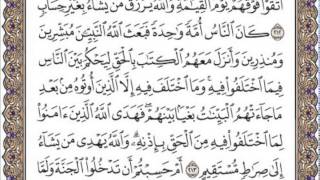 ٱتَّقَوۡاْ فَوۡقَهُمۡ يَوۡمَ ٱلۡقِيَٰمَةِۗ وَٱللَّهُ يَرۡزُقُ مَن يَشَآءُ بِغَيۡرِ حِسَابٖ
٢١٢ كَانَ ٱلنَّاسُ أُمَّةٗ وَٰحِدَةٗ فَبَعَثَ ٱللَّهُ ٱلنَّبِيِّـۧنَ مُبَشِّرِينَ
وَمُنذِرِينَ وَأَنزَلَ مَعَهُمُ ٱلۡكِتَٰبَ بِٱلۡحَقِّ لِيَحۡكُمَ بَيۡنَ ٱلنَّاسِ
فِيمَا ٱخۡتَلَفُواْ فِيهِۚ وَمَا ٱخۡتَلَفَ فِيهِ إِلَّا ٱلَّذِينَ أُوتُوهُ مِنۢ بَعۡدِ
مَا جَآءَتۡهُمُ ٱلۡبَيِّنَٰتُ بَغۡيَۢا بَيۡنَهُمۡۖ فَهَدَى ٱللَّهُ ٱلَّذِينَ ءَامَنُواْ
لِمَا ٱخۡتَلَفُواْ فِيهِ مِنَ ٱلۡحَقِّ بِإِذۡنِهِۦۗ وَٱللَّهُ يَهۡدِي مَن يَشَآءُ
إِلَىٰ صِرَٰطٖ مُّسۡتَقِيمٍ ٢١٣ أَمۡ حَسِبۡتُمۡ أَن تَدۡخُلُواْ ٱلۡجَنَّةَ وَلَمَّا